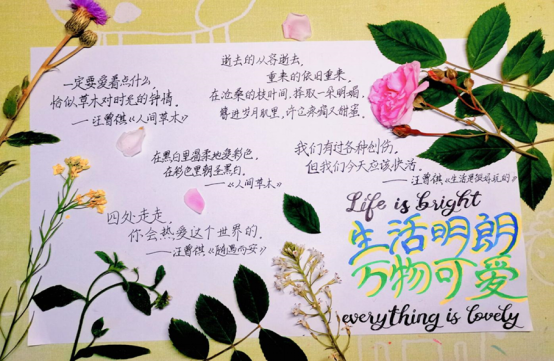 一定要爱着点什么，
恰似草木对时光的钟情。
——汪曾祺《人间草木》
逝去的从容逝去，
重来的依旧重来，
在沧桑的枝叶间，采取一朵明媚，
簪进岁月肌里，许它疼痛又甜蜜。
在黑白里温柔地爱彩色，
在彩色里朝圣黑白。
——《人间草木》
我们有过各种创伤，
但我们今天应该快活。
——汪曾祺《生活是很好玩的》
四处走走，
你会热爱这个世界的。
——汪曾祺《随遇而安》
Life is bright
生活明朗
万物可爱
everything is lovely